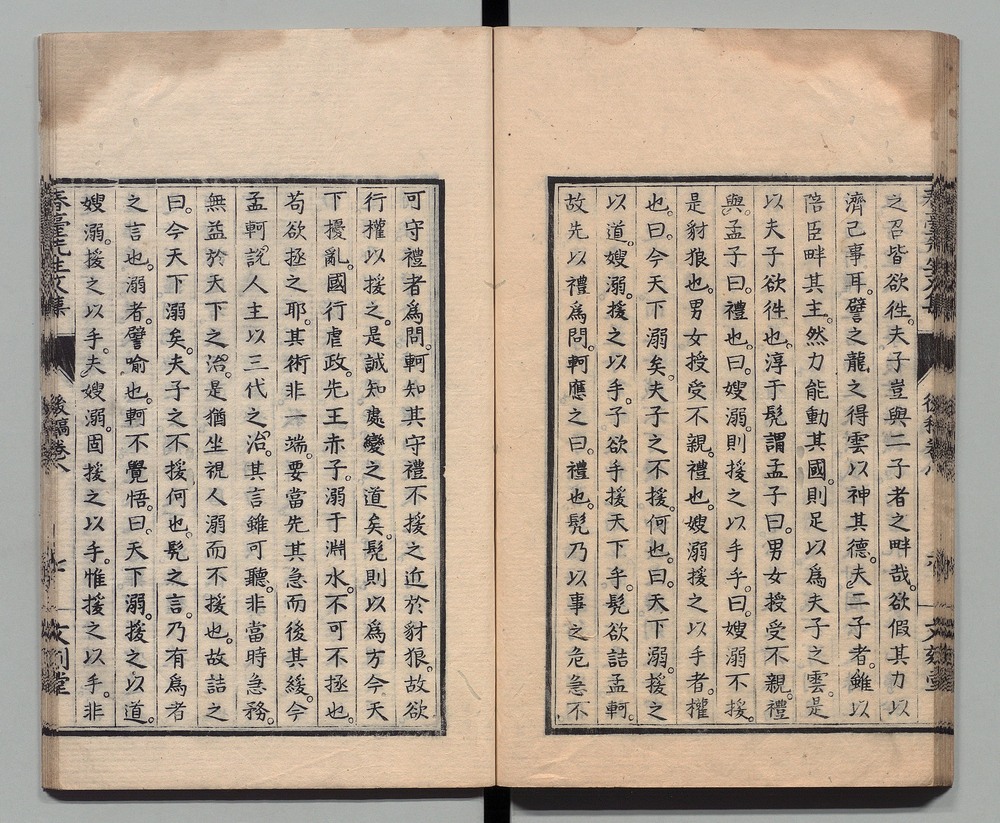 之召皆欲徃。夫子豈與二子者之畔哉。欲假其力以
濟己事耳。譬之龍之得雲以神其德。夫二子者。雖以
陪臣畔其主。然力能動其國。則足以爲夫子之雲。是
以夫子欲徃也。淳于髡謂孟子曰。男女授受不親。禮
與。孟子曰。禮也。曰。嫂溺。則援之以手乎。曰。嫂溺不援。
是豺狼也。男女授受不親。禮也。嫂溺援之以手者。權
也。曰。今天下溺矣。夫子之不援。何也。曰。天下溺。援之
以道。嫂溺。援之以手。子欲手援天下乎。髡欲詰孟軻。
故先以禮爲問。軻應之曰。禮也。髡乃以事之危急不
可守禮者爲問。軻知其守禮不援之近於豺狼。故欲
行權以援之。是誠知處變之道矣。髡則以爲方今天
下擾亂。國行虐政。先王赤子。溺于淵水。不可不拯也。
苟欲拯之耶。其術非一端。要當先其急而後其緩。今
孟軻說人主以三代之治。其言雖可聽。非當時急務。
無益於天下之治。是猶坐視人溺而不援也。故詰之
曰。今天下溺矣。夫子之不援何也。髡之言。乃有爲者
之言也。溺者。譬喻也。軻不覺悟。曰。天下溺。援之以道。
嫂溺。援之以手。夫嫂溺。固援之以手。惟援之以手。非
春臺先生文集 後稿卷八 七